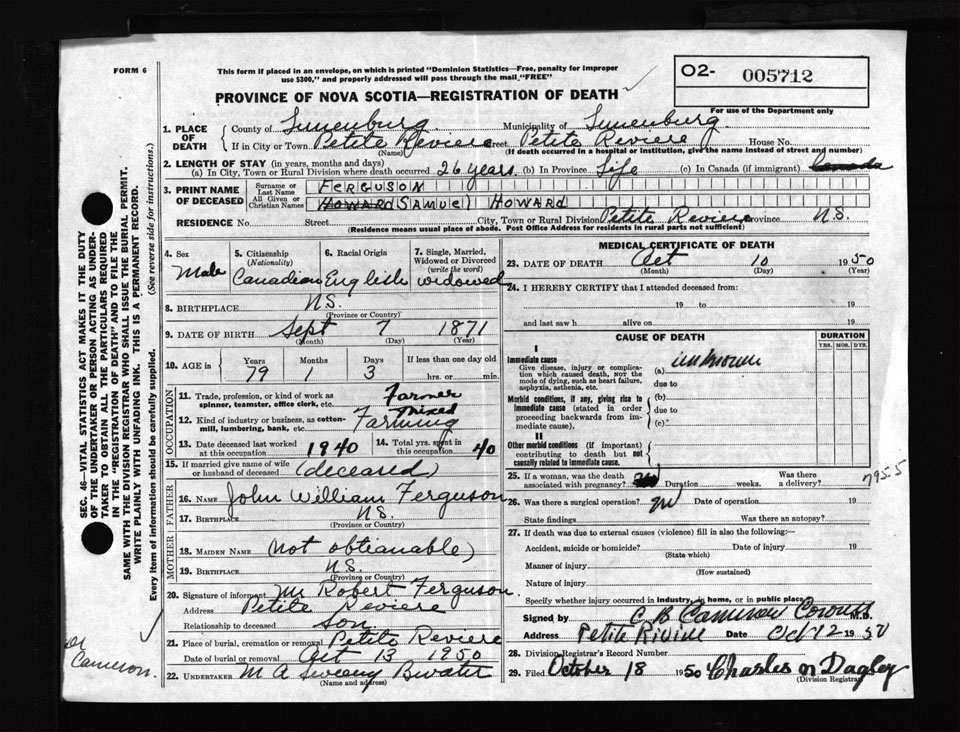 FORM 6
This form if placed in an envelope, on which is printed "Dominion Statistics—Free, penalty for improper
use $300," and properly addressed will pass through the mail "FREE"
O2- 005712
PROVINCE OF NOVA SCOTIA—REGISTRATION OF DEATH
For use of the Department only
1. PLACE OF DEATH
County of Lunenburg Municipality of Lunenburg
If in City or Town Petite Reviere Street Petite Reviere House No.
(Name) (If death occurred in a hospital or institution, give the name instead of street and number)
2. LENGTH OF STAY (in years, months and days)
(a) In City, Town or Rural Division where death occurred 26 years (b) In Province Life (c) In Canada (if immigrant) Canada
3. PRINT NAME OF DECEASED
Surname or Last Name FERGUSON
All Given or Christian Names HOWARD (SAMUEL HOWARD
RESIDENCE No. Street City, Town or Rural Division Petite Reviere Province N.S.
(Residence means usual place of abode. Post Office Address for residents in rural parts not sufficient)
4. Sex Male
5. Citizenship (Nationality) Canadian
6. Racial Origin English
7. Single, Married, Widowed or Divorced (write the word) widowed
8. BIRTHPLACE N.S.
(Province or Country)
9. DATE OF BIRTH Sept 7 1871
(Month) (Day) (Year)
10. AGE in Years 79 Months 1 Days 3 If less than one day old hrs. or min.
OCCUPATION
11. Trade, profession, or kind of work as spinner, teamster, office clerk, etc. Farmer
12. Kind of industry or business, as cotton-mill, lumbering, bank, etc. Mixed Farming
13. Date deceased last worked at this occupation 1940
14. Total yrs. spent in this occupation 40
15. If married give name of wife or husband of deceased (deceased)
FATHER
16. NAME John William Ferguson
17. BIRTHPLACE N.S.
(Province or Country)
MOTHER
18. MAIDEN NAME (not obtianable)
19. BIRTHPLACE N.S.
(Province or Country)
20. Signature of informant Mr Robert Ferguson
Address Petite Reviere
Relationship to deceased son.
21. Place of burial, cremation or removal Petite Reviere
Date of burial or removal Oct 13 1950
22. UNDERTAKER M A Bwater
(Name and address)
MEDICAL CERTIFICATE OF DEATH
23. DATE OF DEATH Oct 10 1950
(Month) (Day) (Year)
24. I HEREBY CERTIFY that I attended deceased from:
19 to 19
and last saw h alive on 19
CAUSE OF DEATH
DURATION
YRS. MOS. DYS.
I
Immediate cause
Give disease, injury or complication which caused death, NOT the mode of dying, such as heart failure, asphyxia, asthenia, etc.
(a) unknown
due to
Morbid conditions, if any, giving rise to immediate cause (stated in order proceeding backwards from immediate cause).
(b)
due to
(c)
II
Other morbid conditions (if important) contributing to death but not causally related to immediate cause.
25. If a woman, was the death associated with pregnancy? Duration weeks. Was there a delivery?
7955
26. Was there a surgical operation? no Date of operation 19
State findings Was there an autopsy?
27. If death was due to external causes (violence) fill in also the following:—
Accident, suicide or homicide? Date of injury 19
(State which)
Manner of injury
(How sustained)
Nature of injury
Specify whether injury occurred in industry, in home, or in public place
Signed by C B Cameron Coroner M.D.
Address Petite Riviere Date Oct 12 1950
28. Division Registrar's Record Number
29. Filed October 18 1950 Charles N Dagley
(Division Registrar)
SEC. 46—VITAL STATISTICS ACT MAKES IT THE DUTY
OF THE UNDERTAKER OR PERSON ACTING AS UNDER-
TAKER TO OBTAIN ALL THE PARTICULARS REQUIRED
IN THE "REGISTRATION OF DEATH" AND TO FILE THE
SAME WITH THE DIVISION REGISTRAR WHO SHALL ISSUE THE BURIAL PERMIT.
WRITE PLAINLY WITH UNFADING INK. THIS IS A PERMANENT RECORD.
Every item of information should be carefully supplied. (See reverse side for instructions.)
Dr
Cameron.